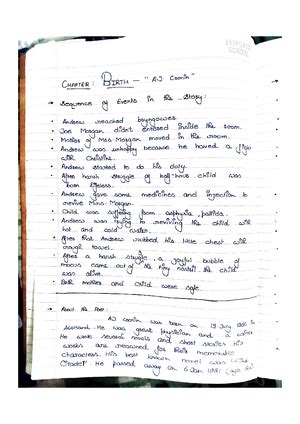 CHAPTER : BIRTH — "A.J. Cronin"
→ Sequence of Events in the Story:
• Andrew reached Bryngower.
• Joe Morgan didn't entered inside the room.
• Mother of Mrs Morgan moved in the room.
• Andrew was unhappy because he haved a fight
with Christine.
• Andrew started to do his duty.
• After harsh struggle of half-hour child was
born lifeless.
• Andrew gave some medicines and injection to
revive Mrs Morgan.
• Child was suffering from asphyxia pallida.
• Andrew was trying to reviving the child with
hot and cold water.
• After that Andrew rubbed his little chest with
rough towel.
• After a harsh struggle, a joyful bubble of
mucus came out of the tiny nostril the child
was alive.
• Both mother and child were safe.
→ About the Poet :
AJ cronin was born on 19 July 1896 in
Scotland. He was great physician and a writer
He wrote several novels and short stories His
works are renowned for their memorable
characters. His best known novel was "The
Citadel" He passed away on 6 Jan 1981